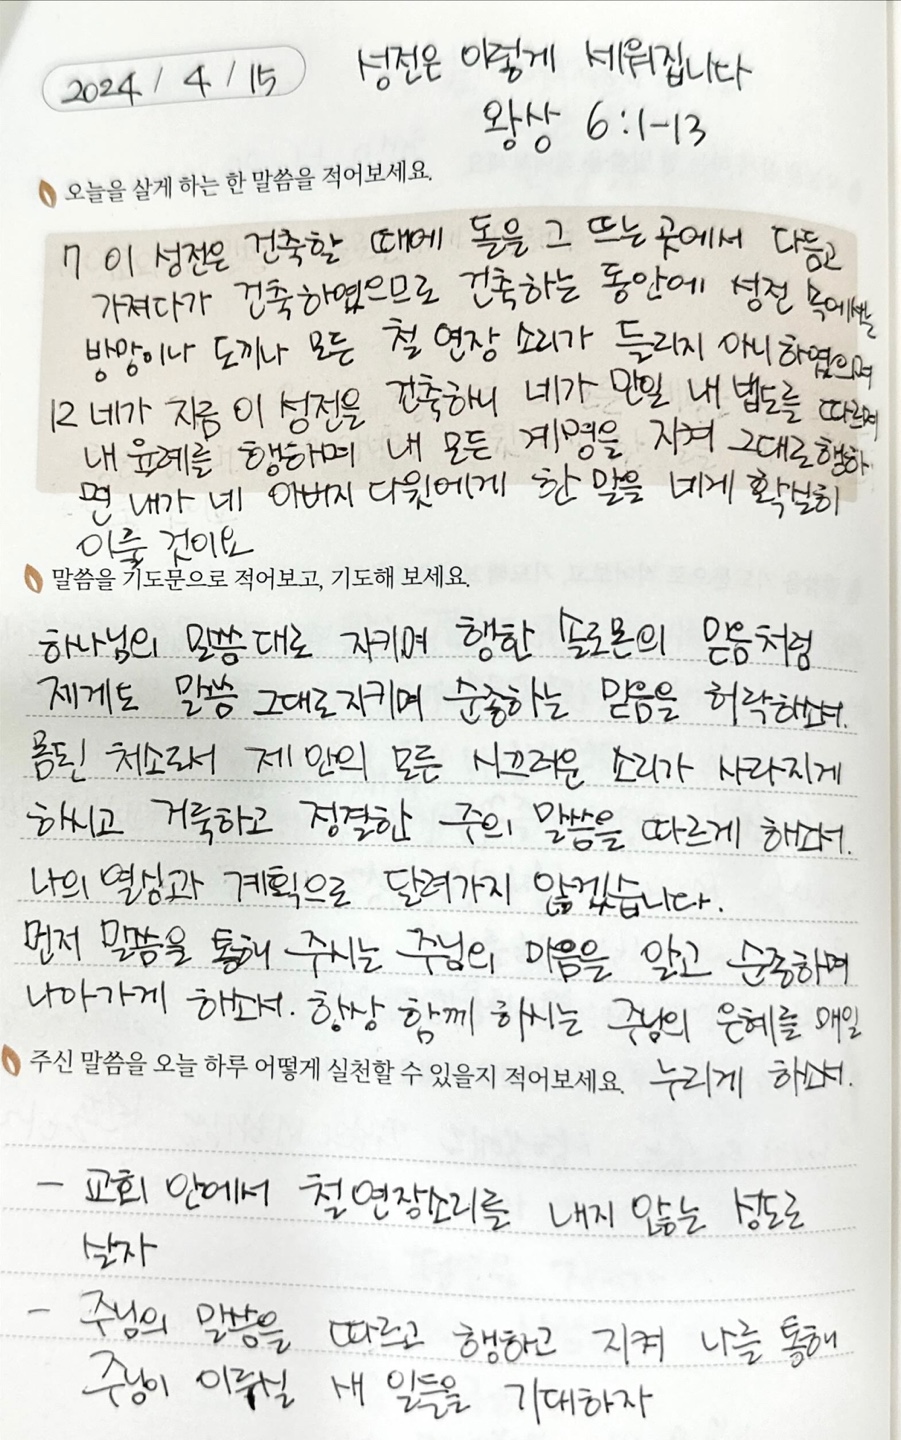 2024 / 4 / 15
성전은 이렇게 세워집니다
왕상 6:1-13
오늘을 살게 하는 한 말씀을 적어보세요.
7 이 성전은 건축할 때에 돌을 그 뜨는 곳에서 다듬고
가져다가 건축하였으므로 건축하는 동안에 성전 속에서는
방망이나 도끼나 모든 철 연장 소리가 들리지 아니하였으며
12 네가 지금 이 성전을 건축하니 네가 만일 내 법도를 따르며
내 율례를 행하며 내 모든 계명을 지켜 그대로 행하
면 내가 네 아버지 다윗에게 한 말을 네게 확실히
이룰 것이요
말씀을 기도문으로 적어보고, 기도해 보세요.
하나님의 말씀대로 지키며 행한 솔로몬의 믿음처럼
제게도 말씀 그대로 지키며 순종하는 믿음을 허락하소서.
몸된 처소로서 제 안의 모든 시끄러운 소리가 사라지게
하시고 거룩하고 정결한 주의 말씀을 따르게 하소서.
나의 열심과 계획으로 달려가지 않겠습니다.
먼저 말씀을 통해 주시는 주님의 마음을 알고 순종하며
나아가게 하소서. 항상 함께 하시는 주님의 은혜를 매일
누리게 하소서.
주신 말씀을 오늘 하루 어떻게 실천할 수 있을지 적어보세요.
- 교회 안에서 철 연장소리를 내지 않는 성도로
살자
- 주님의 말씀을 따르고 행하고 지켜 나를 통해
주님이 이루실 새 일들을 기대하자